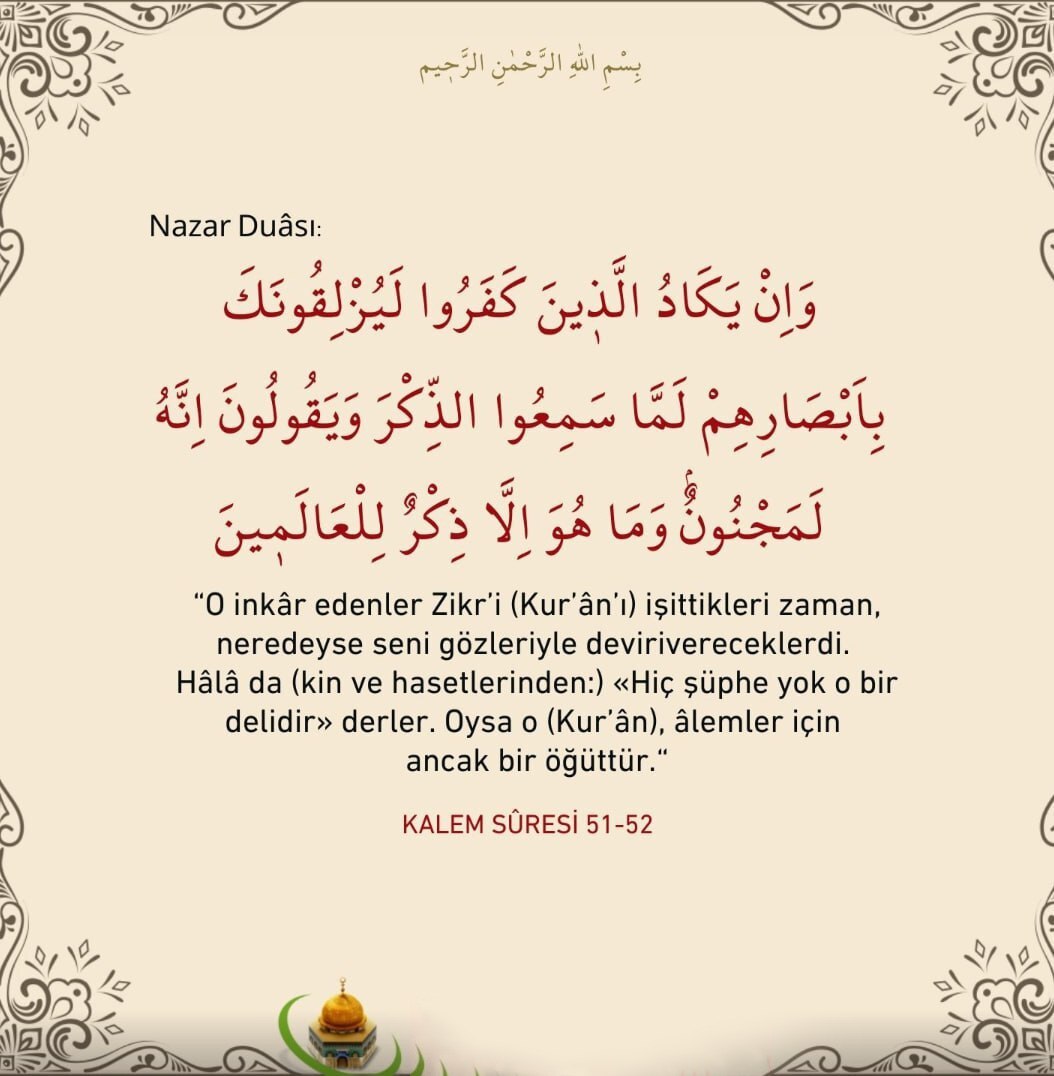 بِسْمِ اللّٰهِ الرَّحْمٰنِ الرَّح۪يمِ
Nazar Duâsı:
وَاِنْ يَكَادُ الَّذ۪ينَ كَفَرُوا لَيُزْلِقُونَكَ
بِاَبْصَارِهِمْ لَمَّا سَمِعُوا الذِّكْرَ وَيَقُولُونَ اِنَّهُ
لَمَجْنُونٌۢ وَمَا هُوَ اِلَّا ذِكْرٌ لِلْعَالَم۪ينَ
“O inkâr edenler Zikr’i (Kur’ân’ı) işittikleri zaman,
neredeyse seni gözleriyle devirivereceklerdi.
Hâlâ da (kin ve hasetlerinden:) «Hiç şüphe yok o bir
delidir» derler. Oysa o (Kur’ân), âlemler için
ancak bir öğüttür.“
KALEM SÛRESİ 51-52